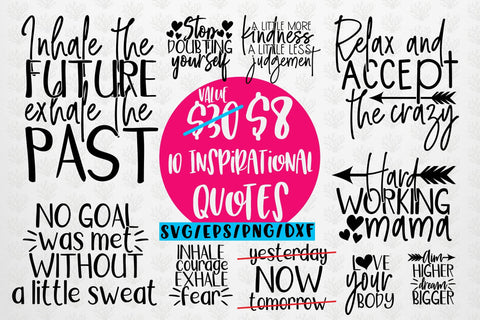 Inhale the
FUTURE
exhale the
PAST
Stop
DOUBTING
yourself
A LITTLE MORE
kindness
A LITTLE LESS
judgement
Relax and
ACCEPT
the crazy
VALUE
$30 $8
10 INSPIRATIONAL
QUOTES
SVG/EPS/PNG/DXF
Hard
WORKING
mama
NO GOAL
was met
WITHOUT
a little sweat
INHALE
courage
EXHALE
fear
yesterday
NOW
tomorrow
LOVE
your
BODY
aim
HIGHER
dream
BIGGER